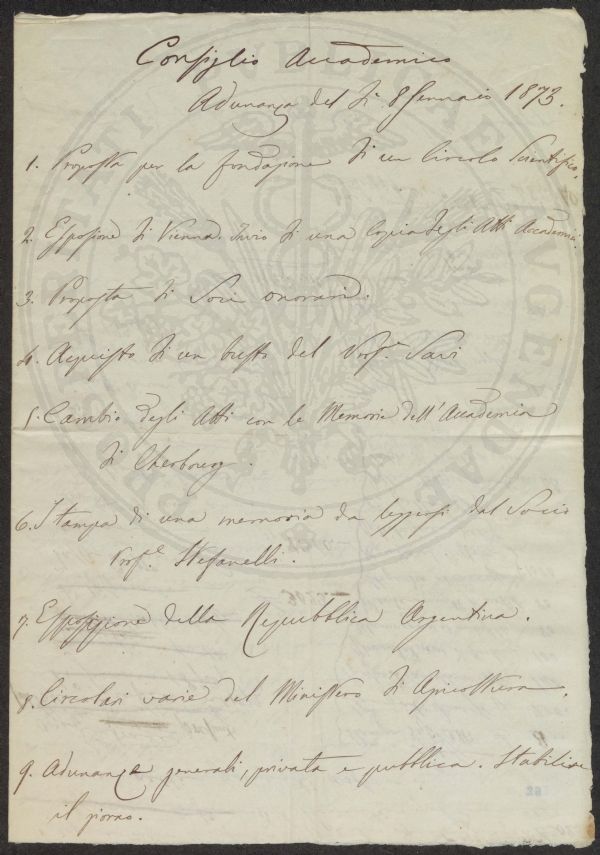 Consiglio Accademico
Adunanza del dì 8 Gennaio 1873.
1. Proposta per la fondazione di un Circolo Scientifico.
2. Esposizione di Vienna. Invio di una Copia degli Atti Accademici.
3. Proposta di Soci onorari.
4. Acquisto di un busto del Prof.re Savi
5. Cambio degli Atti con le Memorie dell'Accademia
di Cherbourg.
6. Stampa di una memoria da leggersi dal Socio
Prof.e Stefanelli.
7. Esposizione della Repubblica Argentina.
8. Circolari varie del Ministero di Agricoltura.
9. Adunanze generali, privata e pubblica. Stabilire
il giorno.